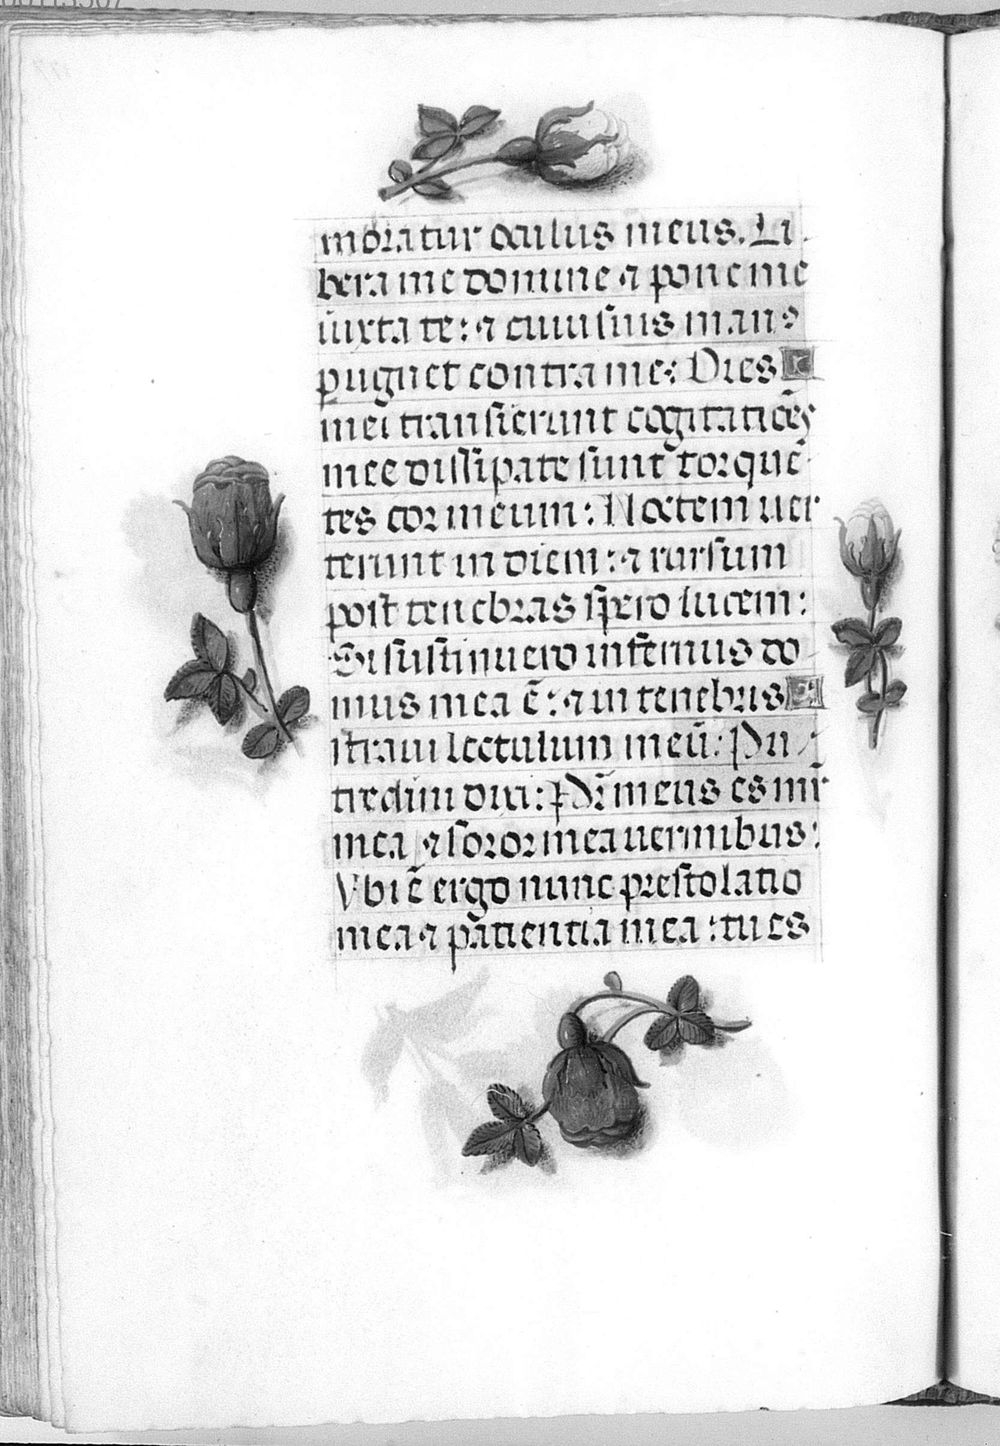 moratur oculus meus. Li
bera me domine ⁊ pone me
iuxta te: ⁊ cuiusuis man⁹
pugnet contra me: Dies
mei transierunt cogitatiōes
mee dissipate sunt torquē
tes cor meum: Noctem uer
terunt in diem: ⁊ rursum
post tenebras spero lucem:
Si sustinuero infernus do
mus mea ē: ⁊ in tenebris
straui lectulum meū: Pu
tredini dixi: Pr̄ meus es mr̄
mea ⁊ soror mea uermibus:
Vbi ē ergo nunc prestolatio
mea ⁊ patientia mea: tu es